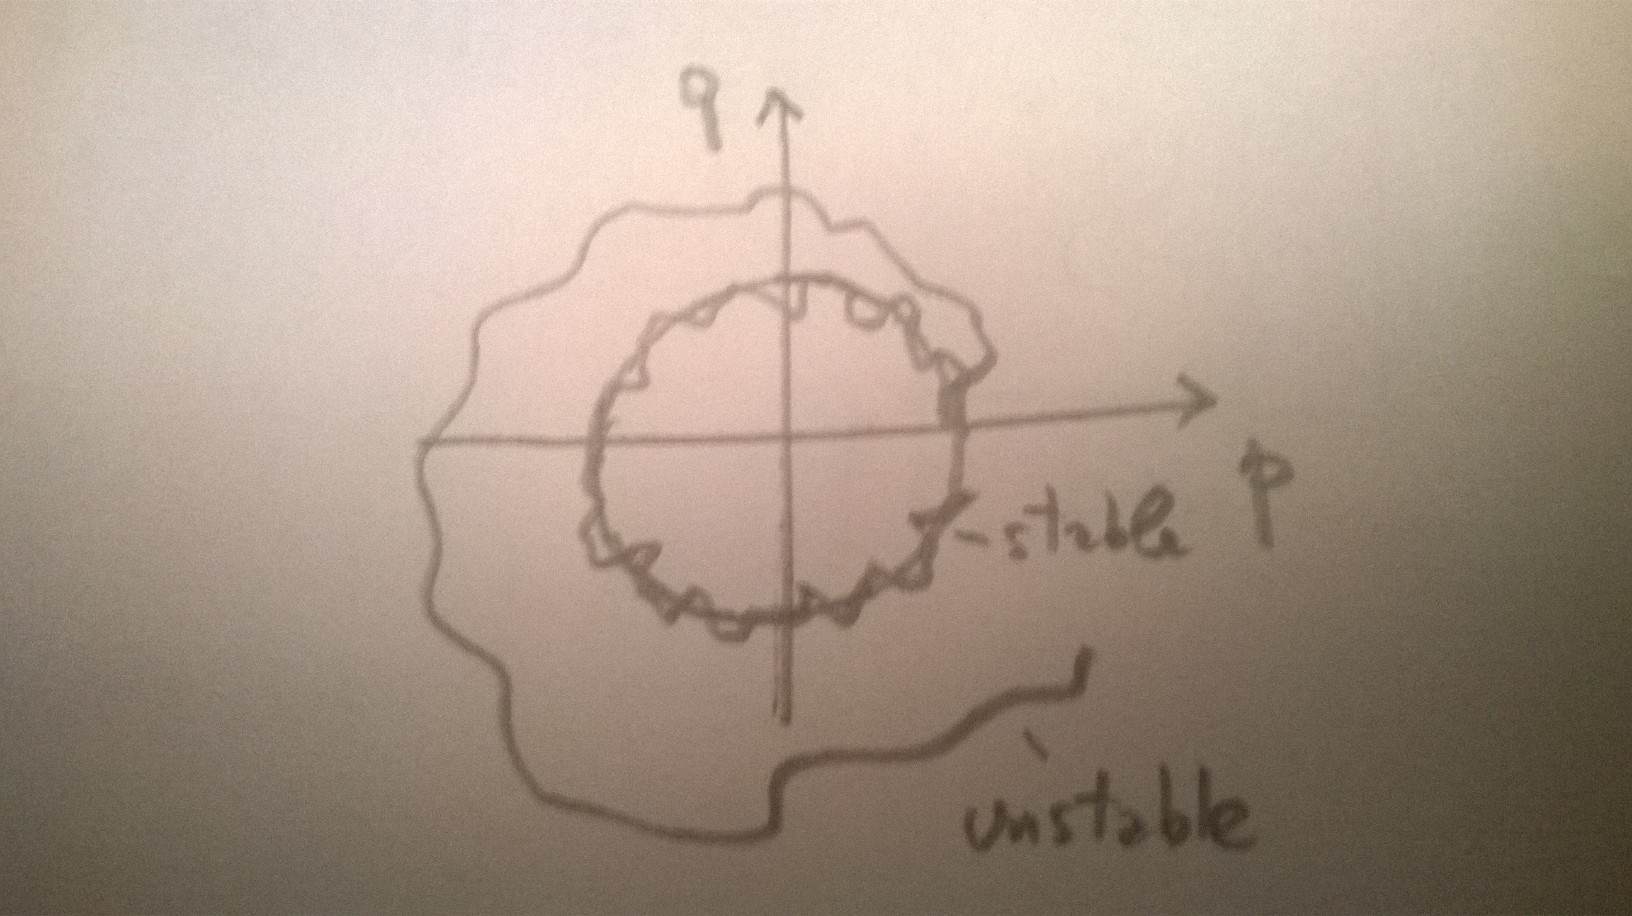 q
p
stable
unstable